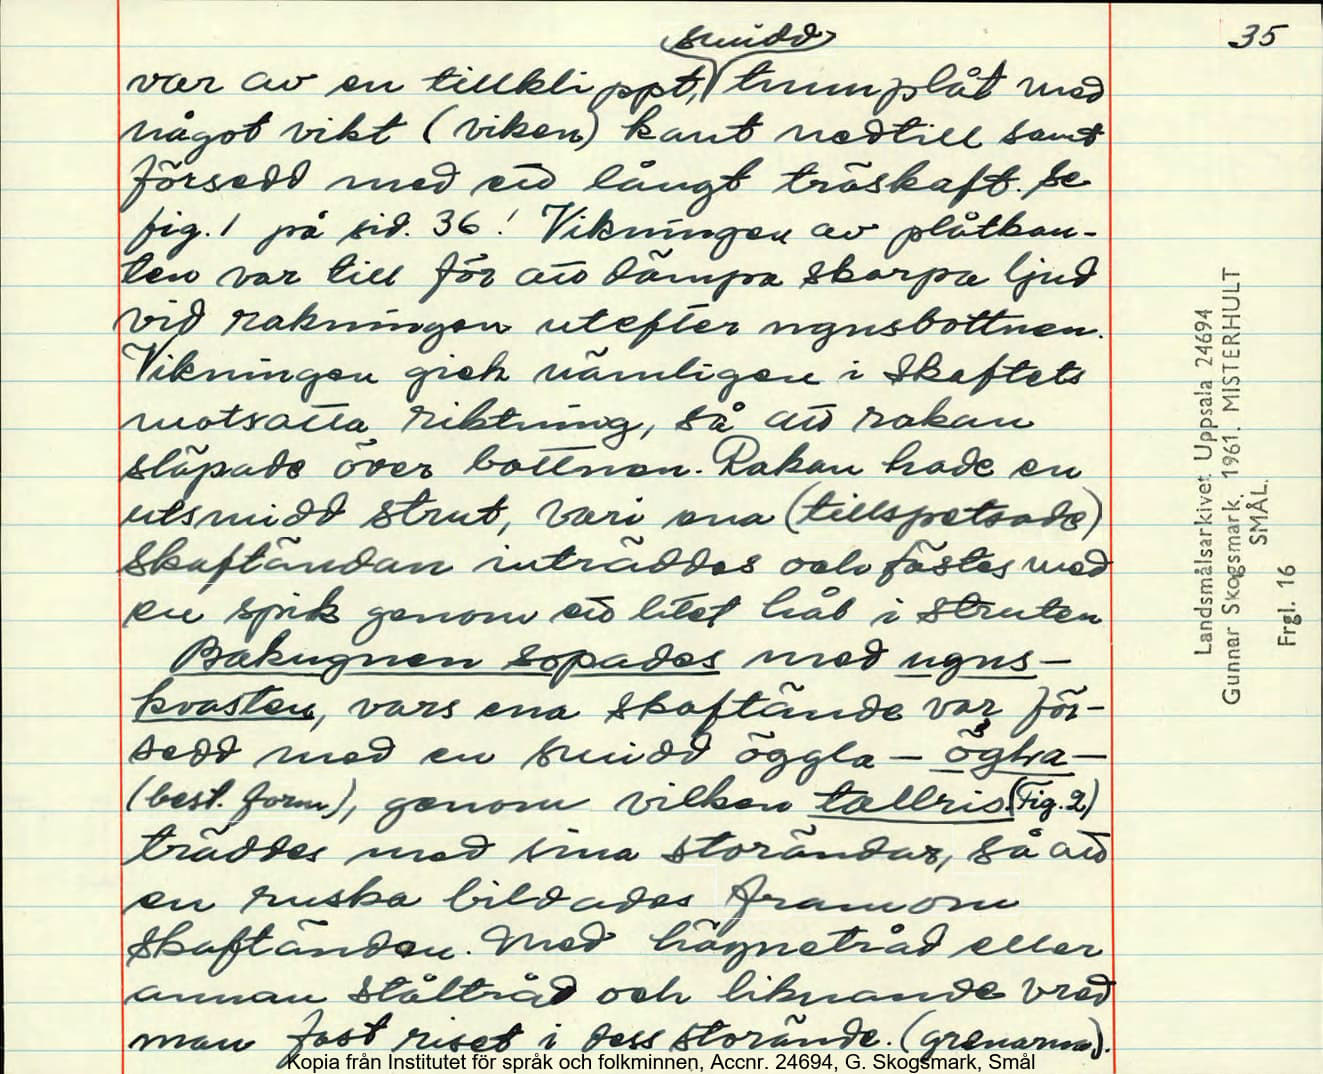 35
smidd
var av en tillklippt, tunnplåt med
något vikt (viken) kant nedtill samt
försedd med ett långt träskaft. Se
fig. 1 på sid. 36! Vikningen av plåtkan-
ten var till för att dämpa skarpa ljud
vid rakningen utefter ugnsbottnen.
Vikningen gick nämligen i skaftets
motsatta riktning, så att rakan
släpade över bottnen. Rakan hade en
utsmidd strut, vari ena (tillspetsade)
skaftändan inträddes och fästes med
en spik genom ett litet hål i struten
Bakugnen sopades med ugns-
kvasten, vars ena skaftände var för-
sedd med en smidd öggla –
(best. form), genom vilken tallris (Fig. 2)
träddes med sina storändar, så att
en ruska bildades framom
skaftänden. Med hägnetråd eller
annan ståltråd och liknande vred
man fast riset i dess storände. (grenarna).
Landsmålsarkivet Uppsala 24694
Gunnar Skogsmark. 1961. MISTERHULT
SMÅL.
Frgl. 16
Kopia från Institutet för språk och folkminnen, Accnr. 24694, G. Skogsmark, Smål